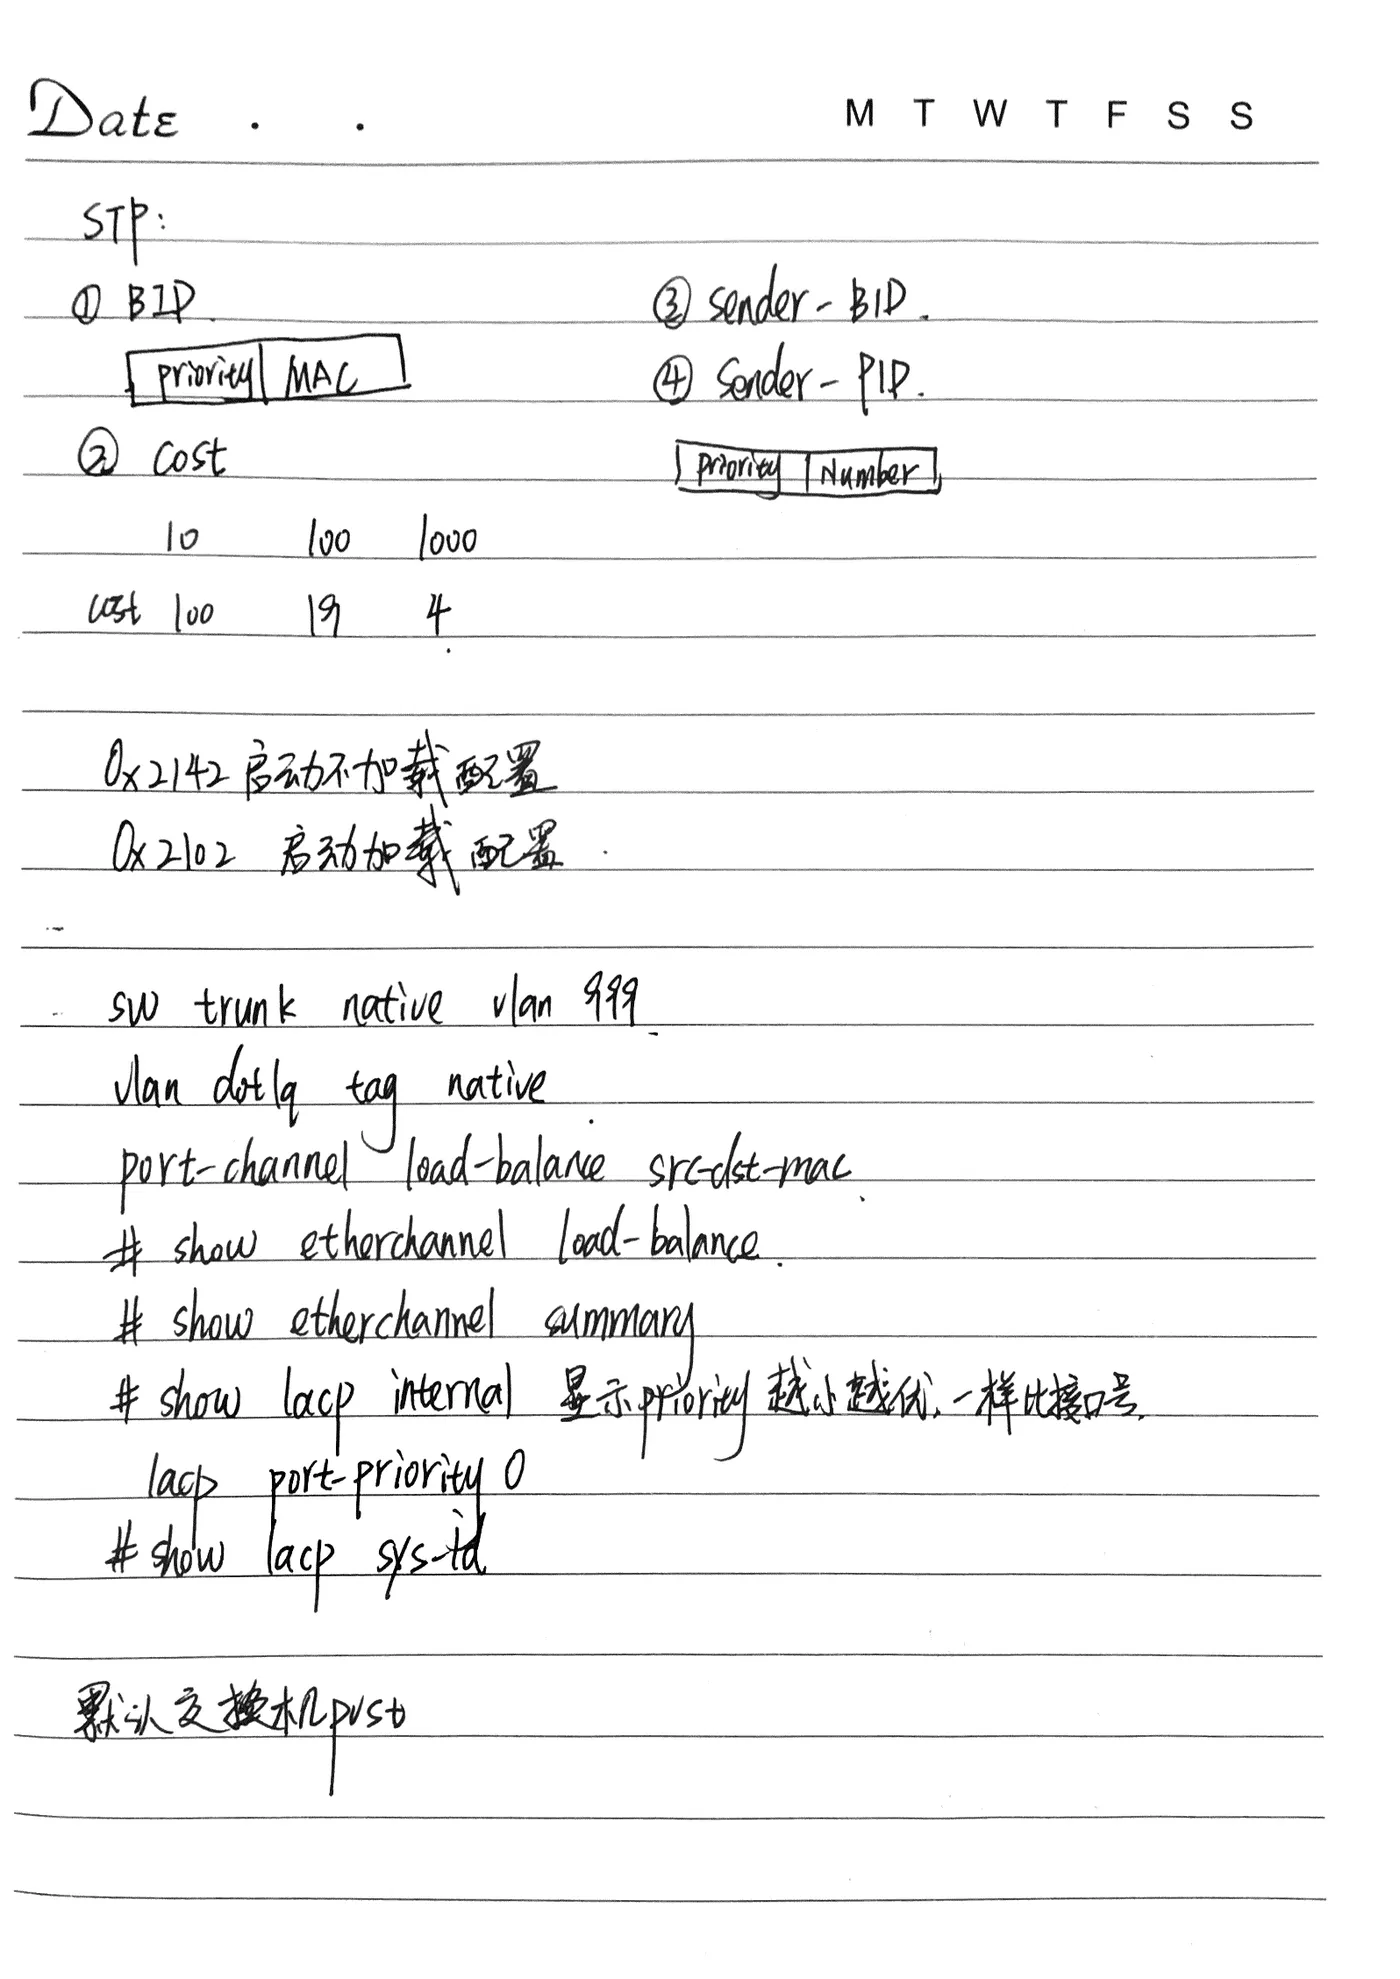 Date . .
M T W T F S S
STP:
① BID.
priority MAC
② cost
10 100 1000
cost 100 19 4
③ sender-BID.
④ sender-PID.
priority Number
0x2142启动不加载配置
0x2102 启动加载配置.
sw trunk native vlan 999
vlan dot1q tag native
port-channel load-balance src-dst-mac
# show etherchannel load-balance.
# show etherchannel summary
# show lacp internal 显示priority越小越优、一样比接口号.
lacp port-priority 0
# show lacp sys-id
默认交换机pvst